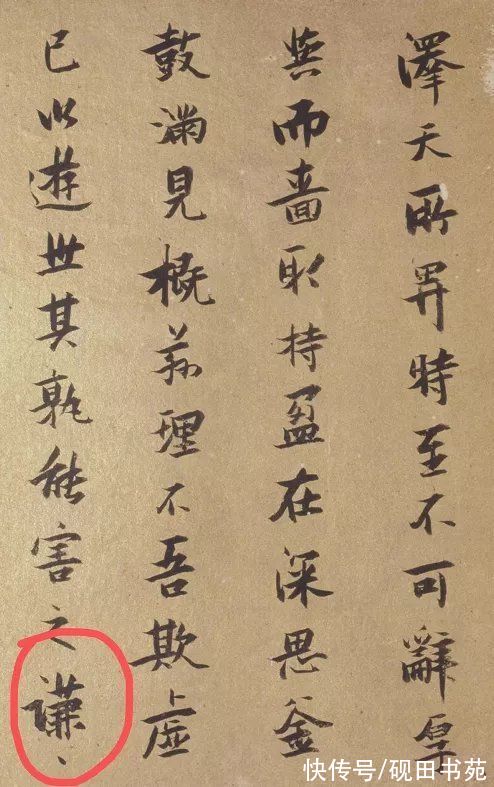 澤天所畀時至不可辭厚
與而嗇取持盈在深思釜
鼓滿見概茲理不吾欺虛
已以遊世其孰能害之謙、
快传号/砚田书苑